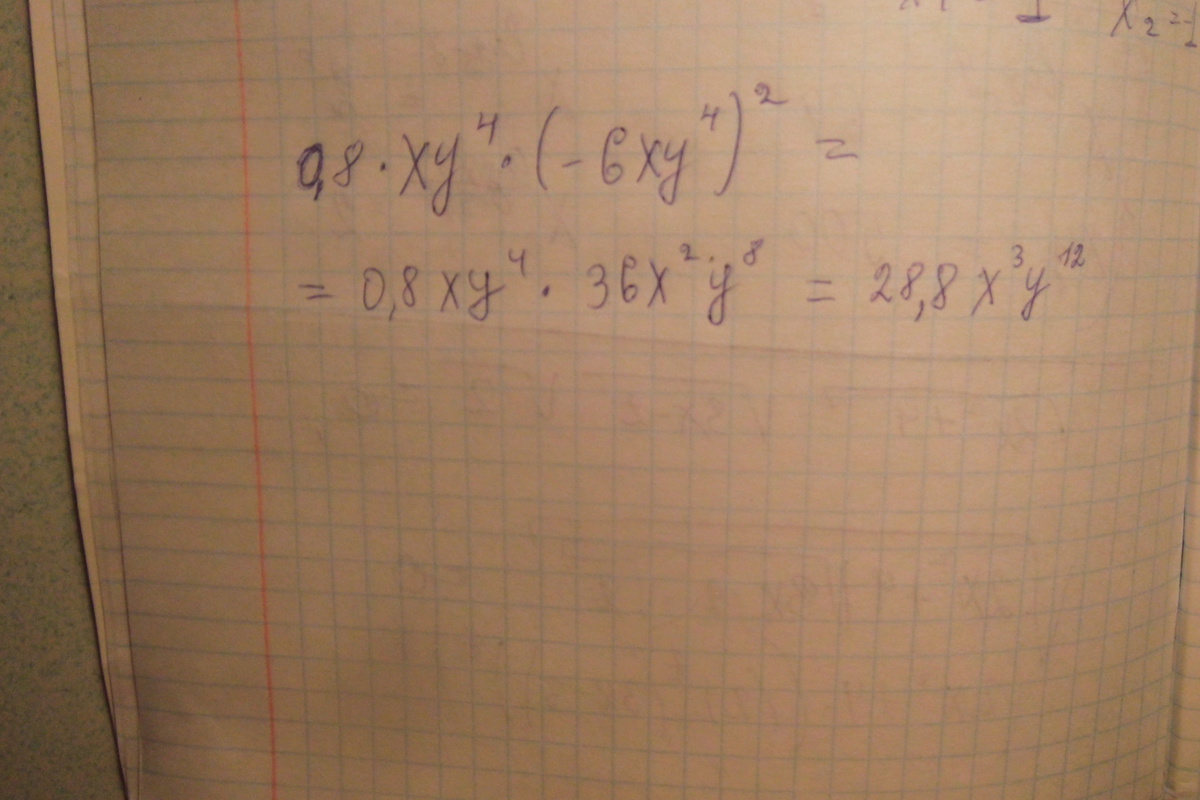 x₂=1
0,8·xy⁴·(-6xy⁴)² =
= 0,8xy⁴·36x²·y⁸ = 28,8x³y¹²